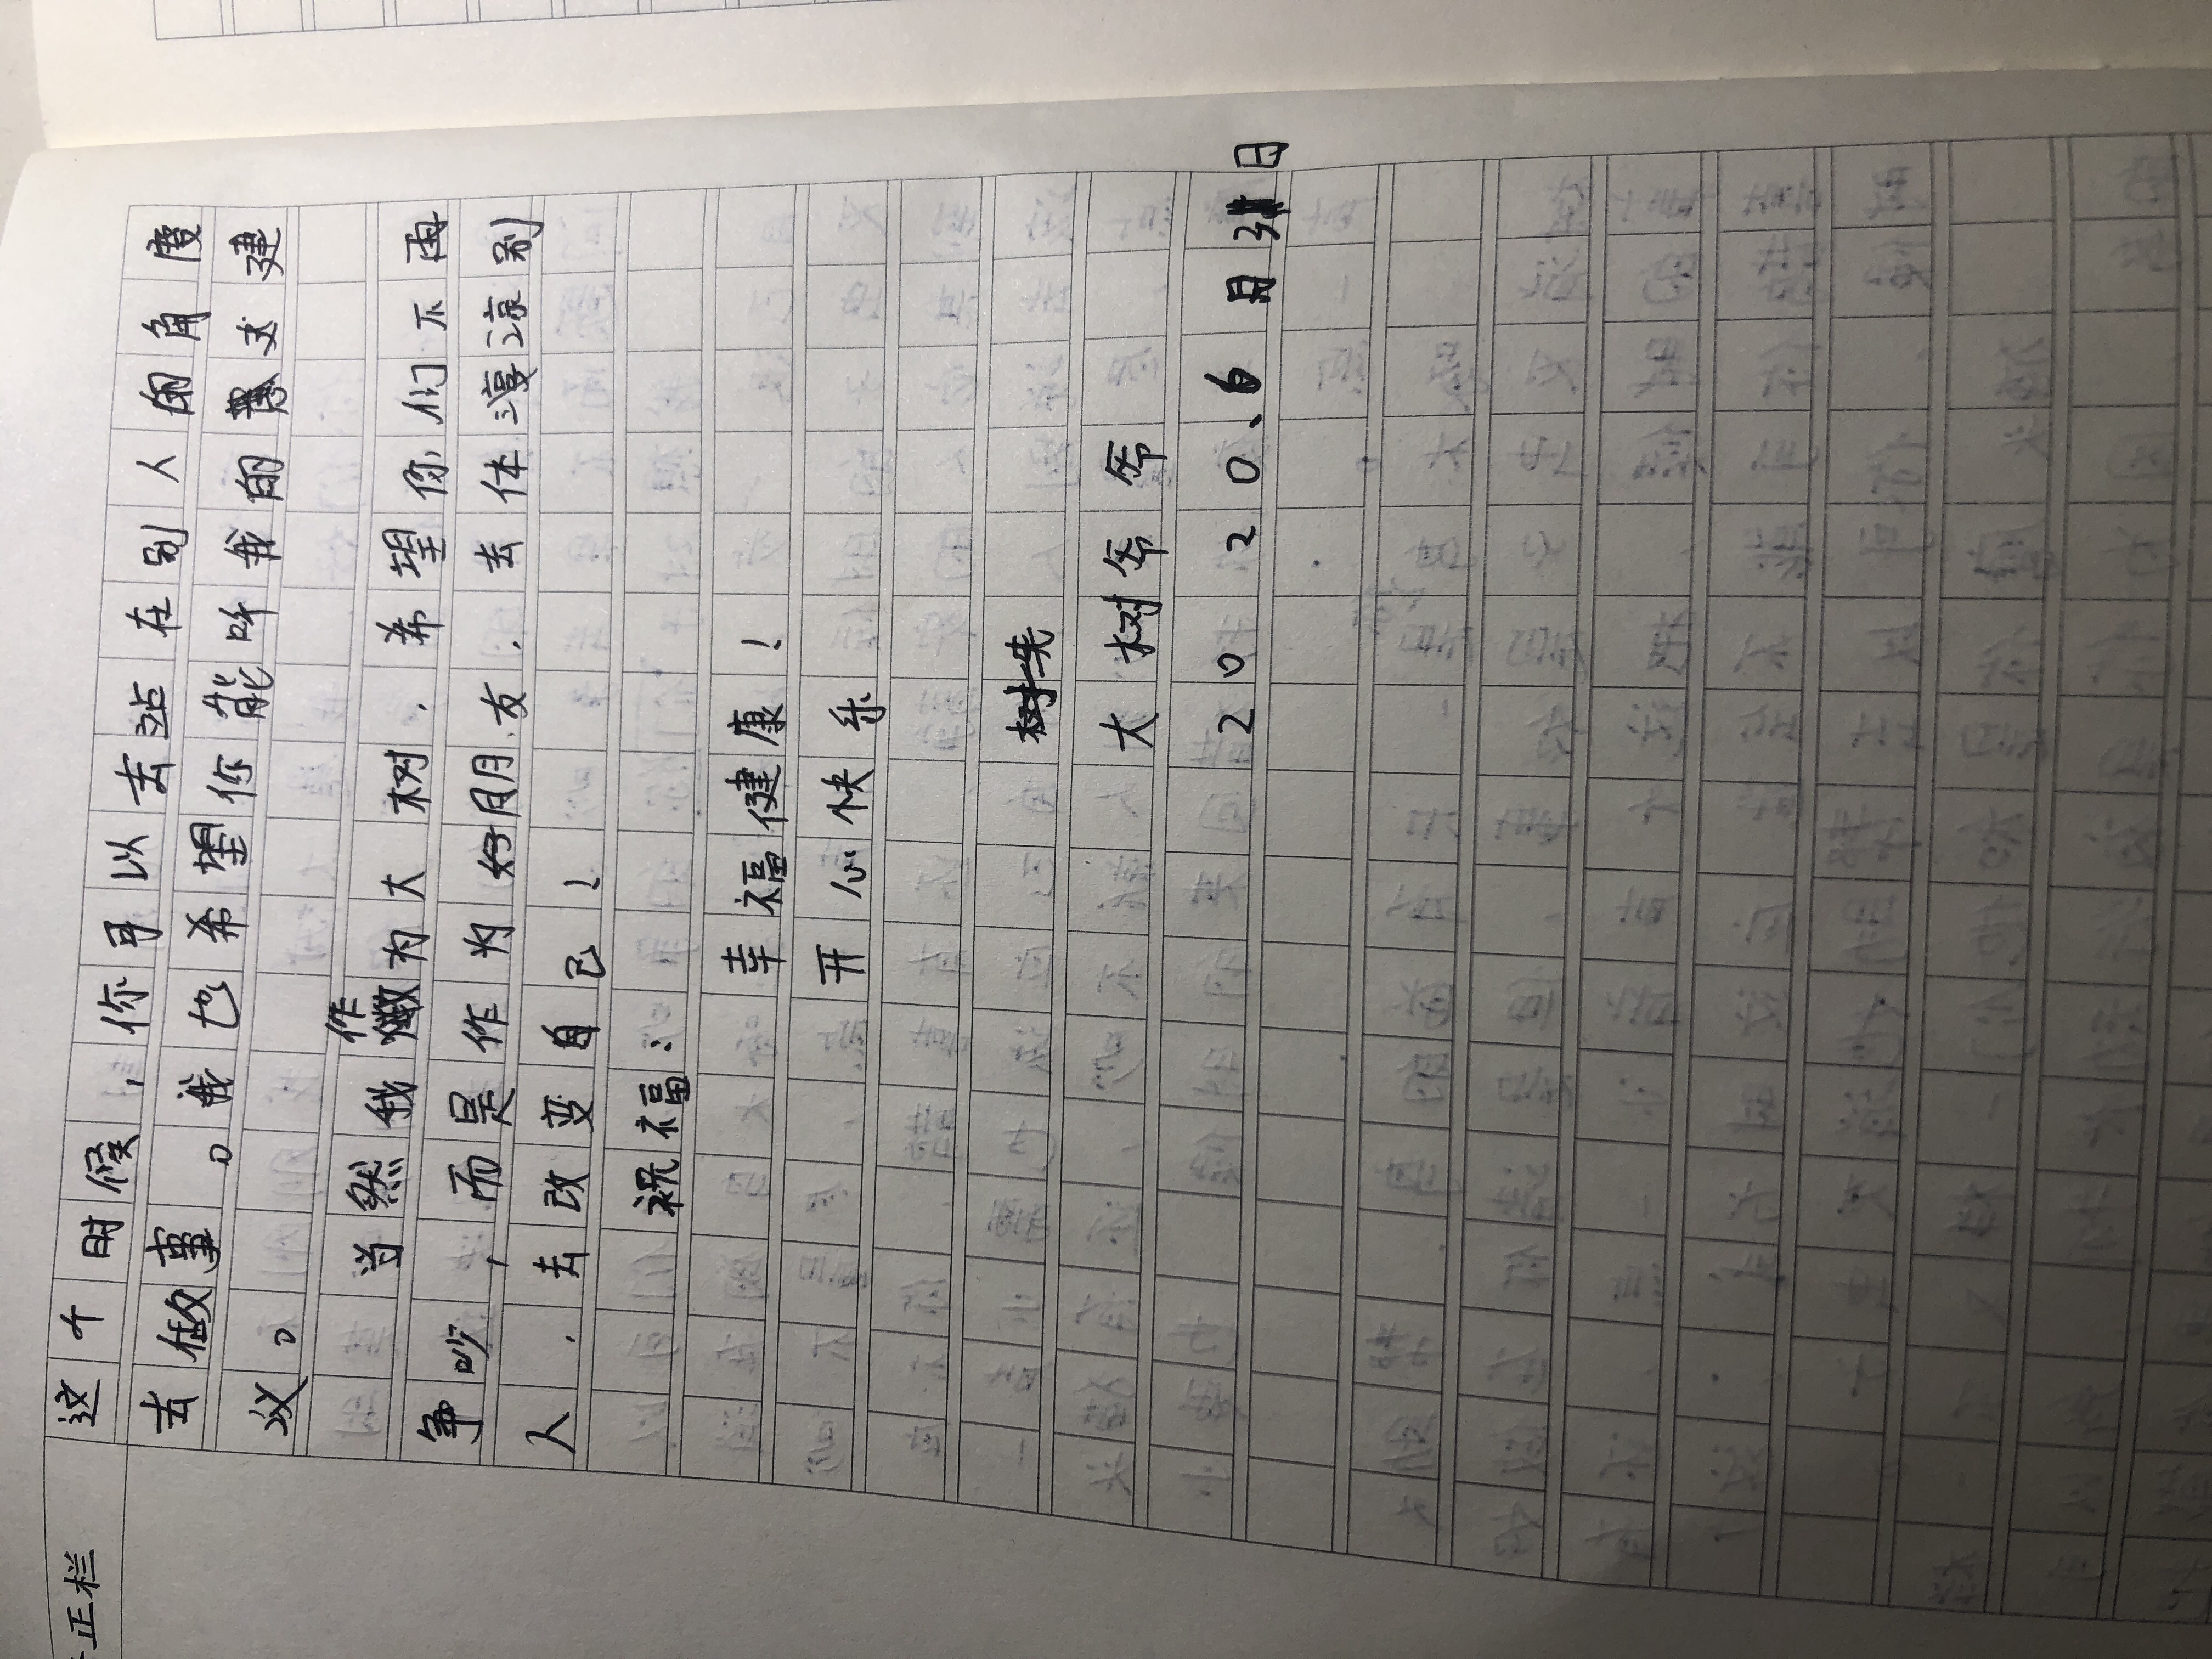 正栏
这个时候，你可以去站在别人的角度
去做事。我也希望你能听我的建
议。
当然我作为大树，希望你们不再
争吵，而是作为好朋友，去体谅别
人，去改变自己！
祝福：
幸福健康！
开心快乐
大树爷爷
2020、6月 日